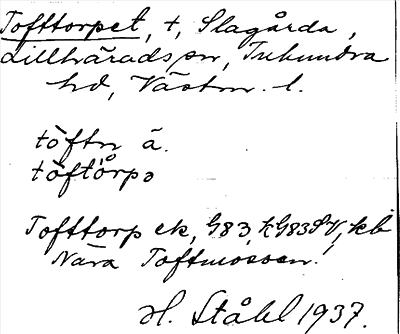 Tofttorpet, +, Slagårda,
Lillhärads sn, Tuhundra
hd, Västm. l.
töftn ä.
töftörpə
Tofttorp ek, G83, kG83 SV, kb
Nära Toftmossen!
H. Ståhl 1937.